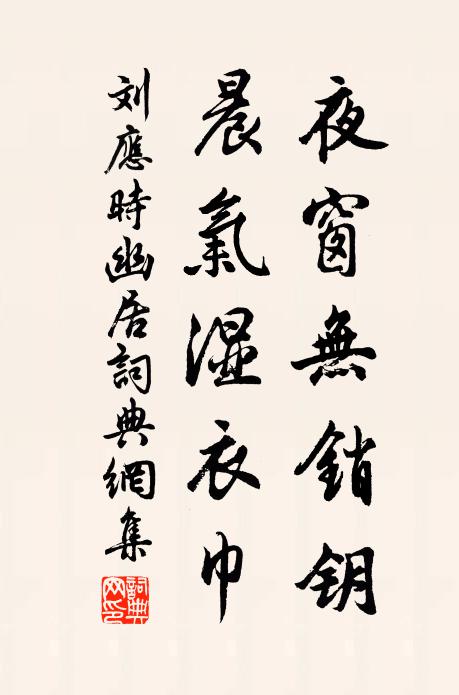 夜窗無銷钥
晨氣湿衣巾
刘應時幽居詞典網集
詞典网印